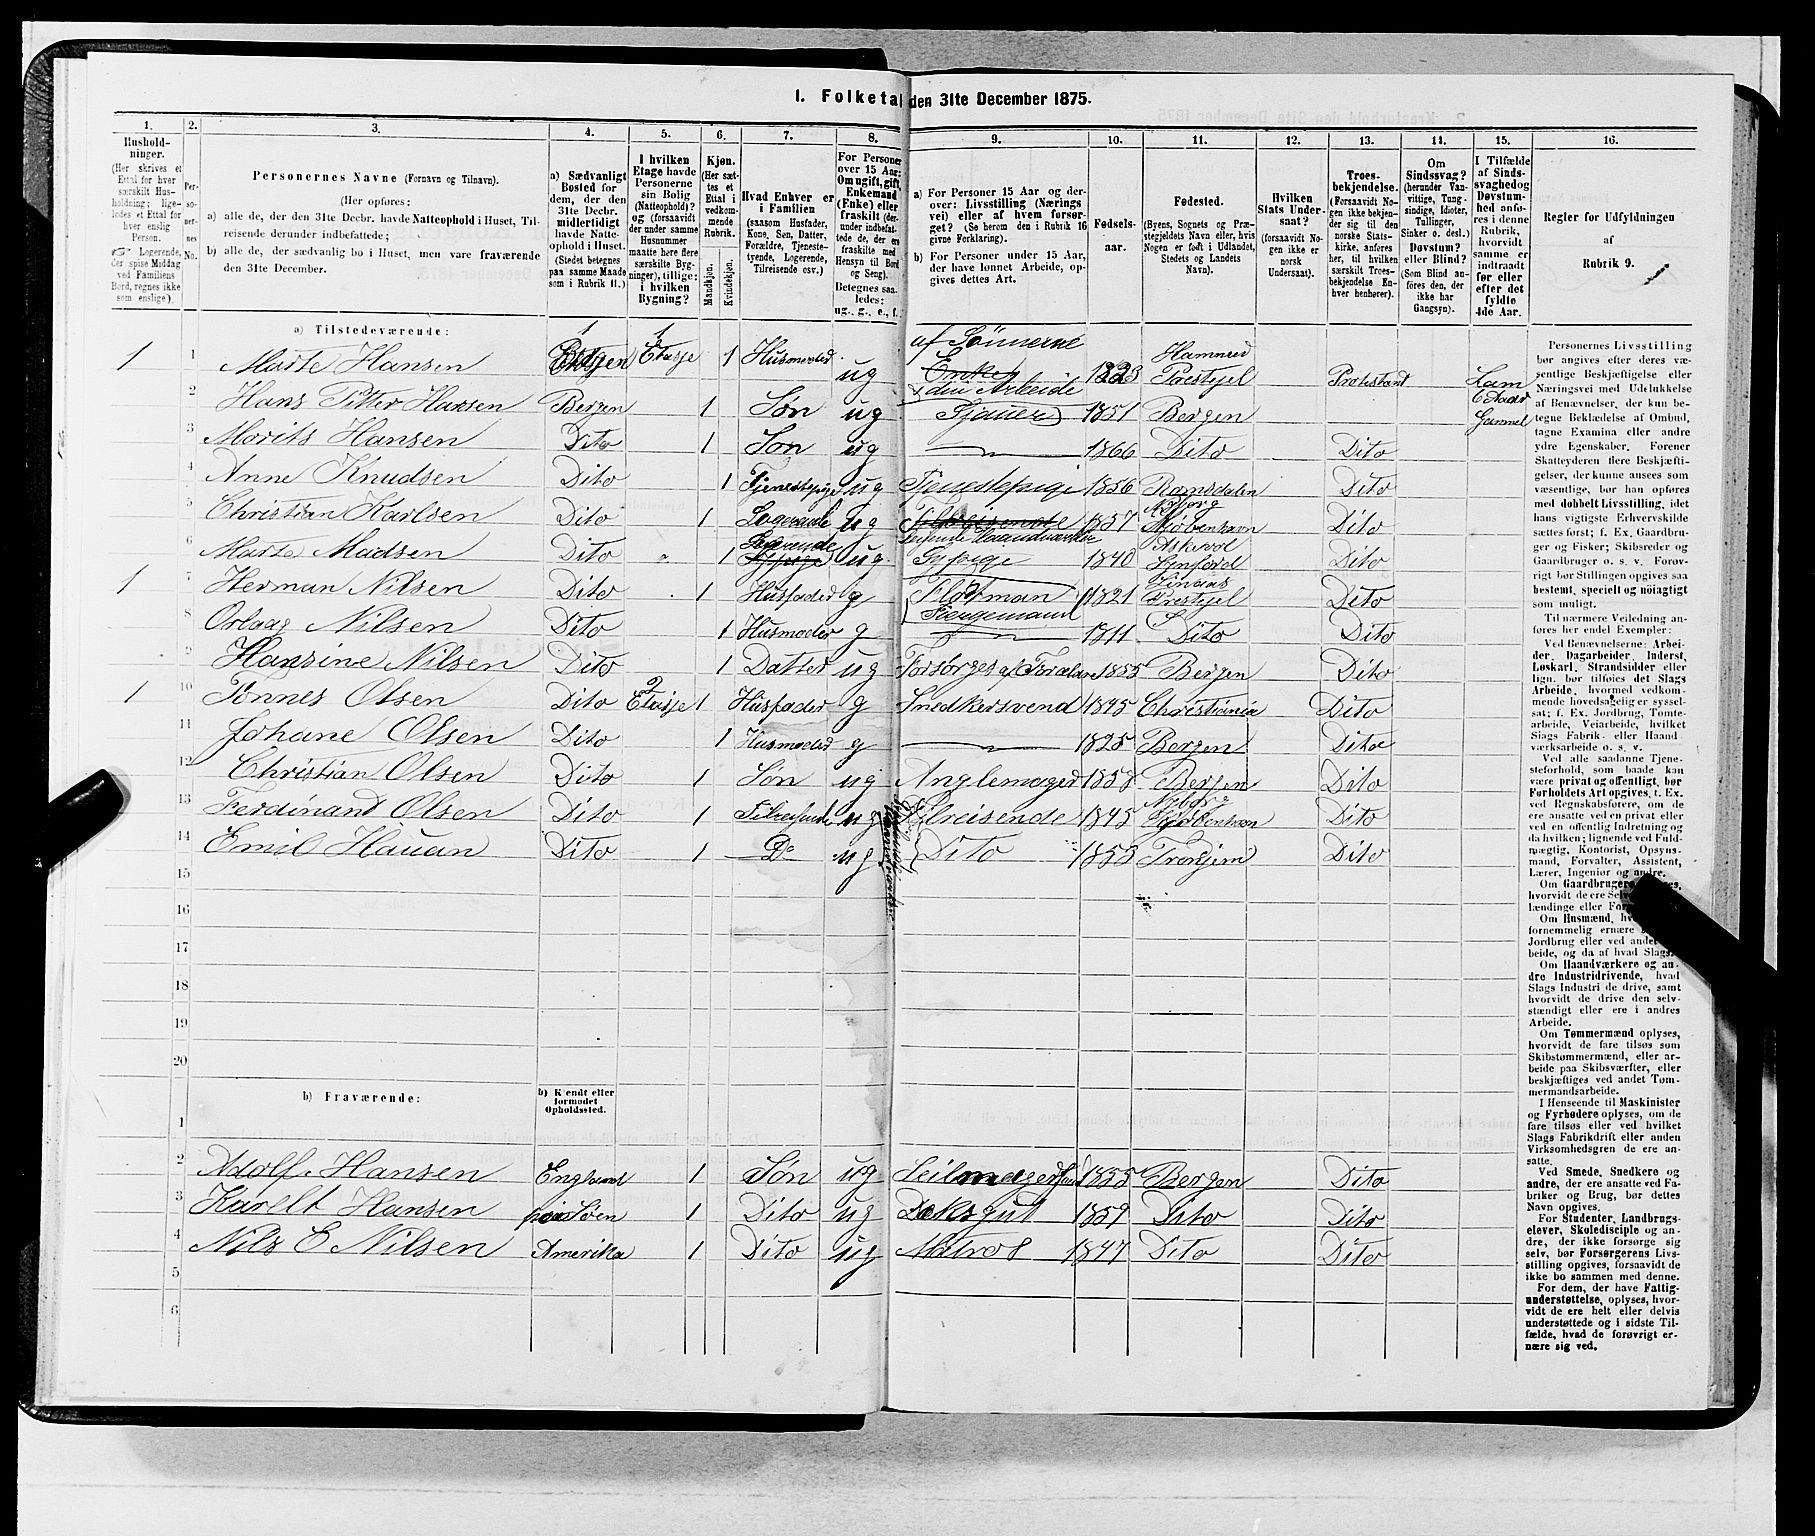 1. Folketal den 31te December 1875.
1. 2. 3. 4. 5. 6. 7. 8. 9. 10. 11. 12. 13. 14. 15. 16.
Hushold-
ninger.
(Her skrives et
Ettal for hver
særskilt Hus-
holdning; lige-
ledes et Ettal for
hver enslig
Person.
Logerende,
der spise Middag
ved Familiens
Bord, regnes ikke
som enslige).
Per-
so-
ner-
nes
No.
Personernes Navne (Fornavn og Tilnavn).
(Her opføres:
a) alle de, der den 31te Decbr. havde Natteophold i Huset, Til-
reisende derunder indbefattede;
b) alle de, der sædvanlig bo i Huset, men vare fraværende
den 31te December.
a) Sædvanligt
Bosted for
dem, der den
31te Decbr.
midlertidigt
havde Natte-
ophold i Huset.
(Stedet betegnes
paa samme Maade
som i Rubrik 11.)
I hvilken
Etage havde
Personerne
sin Bolig
(Natteophold)?
og (forsaavidt
der under samme
Husnummer
maatte høre flere
særskilte Byg-
ninger), tillige:
i hvilken
Bygning?
Kjøn.
(Her sæt-
tes et
Ettal i
vedkom-
mende
Rubrik.
Mandkjøn.
Kvindekjøn.
Hvad Enhver er
i Familien
(saasom Husfader,
Kone, Søn, Datter,
Forældre, Tjeneste-
tyende, Logerende,
Tilreisende osv.)
For Personer
over 15 Aar:
Om ugift, gift,
Enkemand
(Enke) eller
fraskilt (der-
under indbefat-
tede de, der ere
fraskilte med
Hensyn til Bord
og Seng).
Betegnes saa-
ledes:
ug., g., e., f.
a) For Personer 15 Aar og der-
over: Livsstilling (Nærings
vei) eller af hvem forsør-
get? (Se herom den i Rubrik 16
givne Forklaring).
b) For Personer under 15 Aar,
der have lønnet Arbeide, op-
gives dettes Art.
Fødsels-
aar.
Fødested.
(Byens, Sognets og Præ-
stegjeldets Navn eller, hvis
Nogen er født i Udlandet,
Stedets og Landets
Navn).
Hvilken
Stats Under-
saat?
(forsaavidt No-
gen ikke er
norsk
Undersaat).
Troes-
bekjendelse.
(Forsaavidt No-
gen ikke bekjen-
der sig til den
norske Stats-
kirke, anføres
her, til hvilken
særskilt Troes-
bekjendelse En-
hver henhører).
Om
Sindssvag?
(herunder Van-
vittige, Tung-
sindige, Idioter,
Tullinger,
Sinker o. desl.)
Døvstum?
eller Blind?
(Som Blind an-
føres den, der
ikke har
Gangsyn).
I Tilfælde
af Sinds-
svaghed og
Døvstum-
hed anfø-
res i denne
Rubrik,
hvorvidt
samme er
indtraadt
før eller
efter det
fyldte
4de Aar.
Regler for Udfyldningen
af
Rubrik 9.
a) Tilstedeværende:
1 1 Marte Hansen Bergen 1 Etasje 1 Husmoder ug af Sønnerne Enke 1823 Hamnved Præstejel Protestand Lam
2 Hans Petter Hansen Bergen 1 Søn ug Arbeide Sjauer 1851 Bergen 6 Aar Gammel
3 Morits Hansen Dito 1 Søn ug 1866 Dito Dito
4 Anne Knudsen Dito 1 Tjenestepige ug Tjenestepige 1856 Romsdalen Dito
5 Christian Karlsen Dito 1 Logerende ug 1857 Nyborg Kjøbenhavn Dito
6 Marte Madsen Dito 1 Logerende ug Sypige 1840 Askevol Dito
1 7 Herman Nilsen Dito 1 Husfader g Flotman 1821 Lindaas Prestejel Dito
8 Nilsen Dito 1 Husmoder g 1811 Dito Dito
9 Hansine Nilsen Dito 1 Datter ug Forsørges af Foræld 1855 Bergen Dito
1 10 Tønnes Olsen Dito 2 Etasje 1 Husfader g Snedkersvend 1845 Christiania Dito
11 Johane Olsen Dito 1 Husmoder g 1825 Bergen Dito
12 Christian Olsen Dito 1 Søn ug Anglemager 1858 Bergen Dito
13 Ferdinand Olsen Dito 1 Tilreisende ug Tilreisende 1845 Nyborg Kjøbenhavn Dito
14 Emil Hauan Dito 1 Do ug Dito 1853 Tronjem Dito
15
16
17
18
19
20
b) Fraværende:
b) Kjendt eller
formodet
Opholdssted.
1
2 Adolf Hansen England 1 Søn ug Seilmager 1855 Bergen Dito
3 Karelt Hansen paa Søen 1 Dito ug Deksgut 1859 Dito Dito
4 Nils E Nilsen Amerika 1 Dito ug Matros 1847 Dito Dito
5
6
Personernes Livsstilling
bør angives efter deres væ-
sentlige Beskjæftigelse eller
Næringsvei med Udelukkelse
af Benævnelser, der kun be-
tegne Beklædelse af Ombud,
tagne Examina eller andre
ydre Egenskaber. Forener
Skatteyderen flere Beskjæfti-
gelser, der kunne ansees som
væsentlige, bør han opføres
med dobbelt Livsstilling, idet
hans vigtigste Erhvervskilde
sættes først; f. Ex. Gaardbru-
ger og Fisker; Skibsreder og
Gaardbruger o. s. v. Forøv-
rigt bør Stillingen opgives saa
bestemt, specielt og nöiagtigt
som muligt.
Til nærmere Veiledning an-
føres her endel Exempler:
Ved Benævnelserne: Arbei-
der, Dagarbeider, Inderst,
Løskarl, Strandsidder eller
lign. bør tilføies det Slags
Arbeide, hvormed vedkom-
mende hovedsagelig er syssel-
sat; f. Ex. Jordbrug, Tomte-
arbeide, Veiarbeide, hvilket
Slags Fabrik- eller Haand-
værksarbeide o. s. v.
Ved alle saadanne Tjene-
steforhold, som baade kan
være privat og offentligt, bør
Forholdets Art opgives, f. Ex.
ved Regnskabsførere, om de
ere ansatte ved en privat eller
ved en offentlig Indretning og
da hvilken; lignende ved Fuld-
mægtig, Kontorist, Opsyns-
mand, Forvalter, Assistent,
Lærer, Ingeniør og andre.
Om Gaardbrugere
hvorvidt de ere
lændinge eller
Om Husmænd,
fornemmelig ernære
Jordbrug eller ved andet
beide, og da af hvad Slags.
Om Haandværkere og an-
dre Industridrivende, hvad
Slags Industri de drive, samt
hvorvidt de drive den selv-
stændigt eller ere i andres
Arbeide.
Om Tømmermænd oplyses,
hvorvidt de fare tilsøs som
Skibstømmermænd, eller ar-
beide paa Skibsværfter, eller
beskjæftiges ved andet Tøm-
mermandsarbeide.
I Henseende til Maskinister
og Fyrbødere oplyses, om de
fare tilsøs eller ved hvilket
Slags Fabrikdrift eller anden
Virksomhedsgren de ere an-
satte.
Ved Smede, Snedkere og
andre, der ere ansatte ved Fa-
briker og Brug, bør dettes
Navn opgives.
For Studenter, Landbrugs-
elever, Skoledisciple og an-
dre, der ikke forsørge sig
selv, bør Forsørgerens Livs-
stilling opgives, forsaavidt de
ikke bo sammen med denne.
For dem, der have Fattig-
understøttelse, oplyses, hvor-
vidt de ere helt eller delvis
understøttede og i sidste Til-
fælde, hvad de forøvrigt er-
nære sig ved.